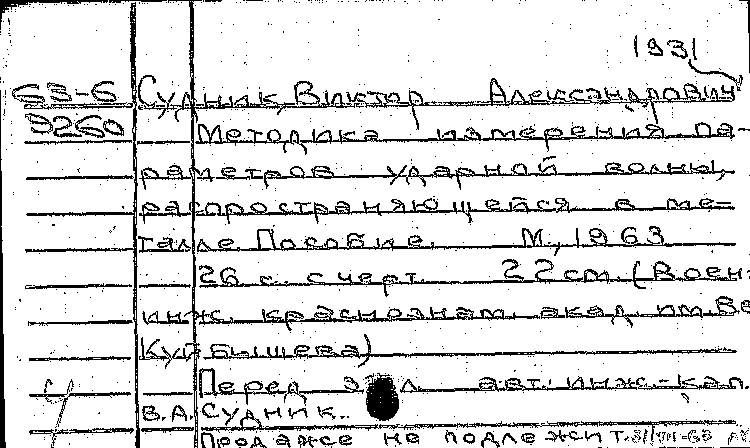 1931
63-6 Судник, Виктор Александрович
9260 Методика измерения па-
раметров ударной волны,
распространяющейся в ме-
талле. Пособие. М., 1963
26 с. с черт. 22 см. (Воен.-
инж. краснознам. акад. им. В.В.
Куйбышева)
Перед загл. авт.: инж.-кап.
В.А. Судник.
Продаже не подлежит.